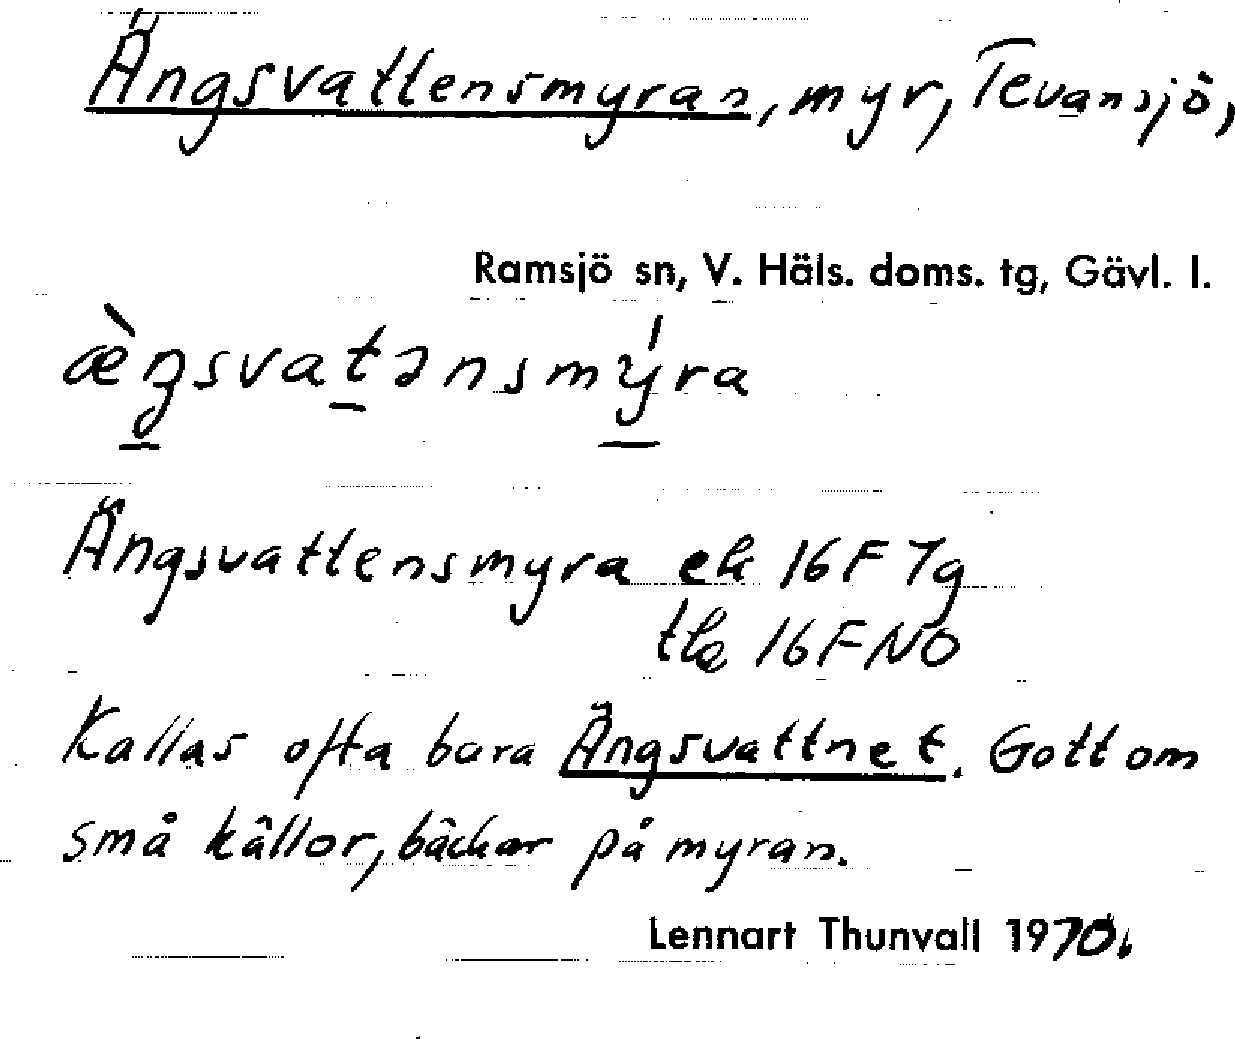 Ängsvattensmyran, myr, Tevansjö,
Ramsjö sn, V. Häls. doms. tg, Gävl. l.
æ̀ŋsvatənsmýra
Ängsvattensmyra ek 16F7g
tk 16FNO
Kallas ofta bara Ängsvattnet. Gott om
små källor, bäckar på myran.
Lennart Thunvall 1970.